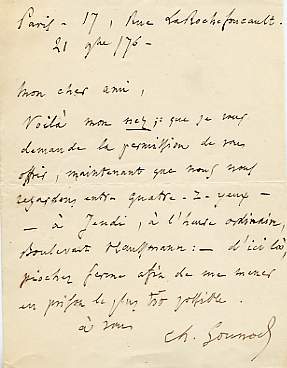 Paris - 17, Rue LaRochefoucault.
21 9bre /76 -
Mon cher ami,
Voilà mon nez; que je vous
demande la permission de vous
offrir, maintenant que nous nous
regardons entre quatre-z-yeux -
- à Jeudi, à l'heure ordinaire,
Boulevart Haussmann: - d'ici là,
piochez ferme afin de me mener
en prison le plus tôt possible.
à vous
Ch. Gounod